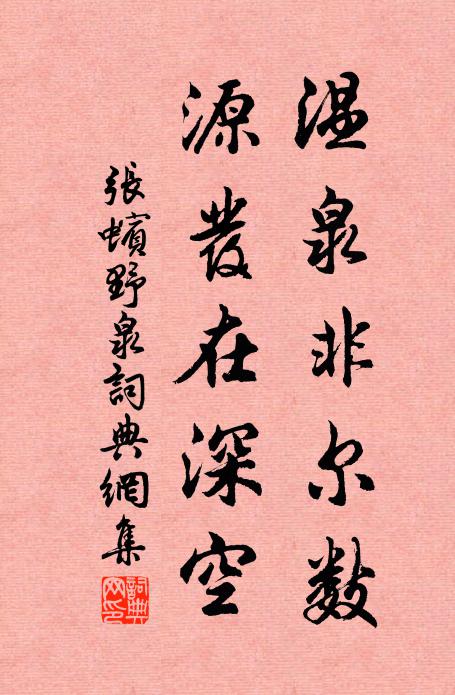 温泉非尔数
源發在深空
張蠙野泉詞典網集
詞典网印